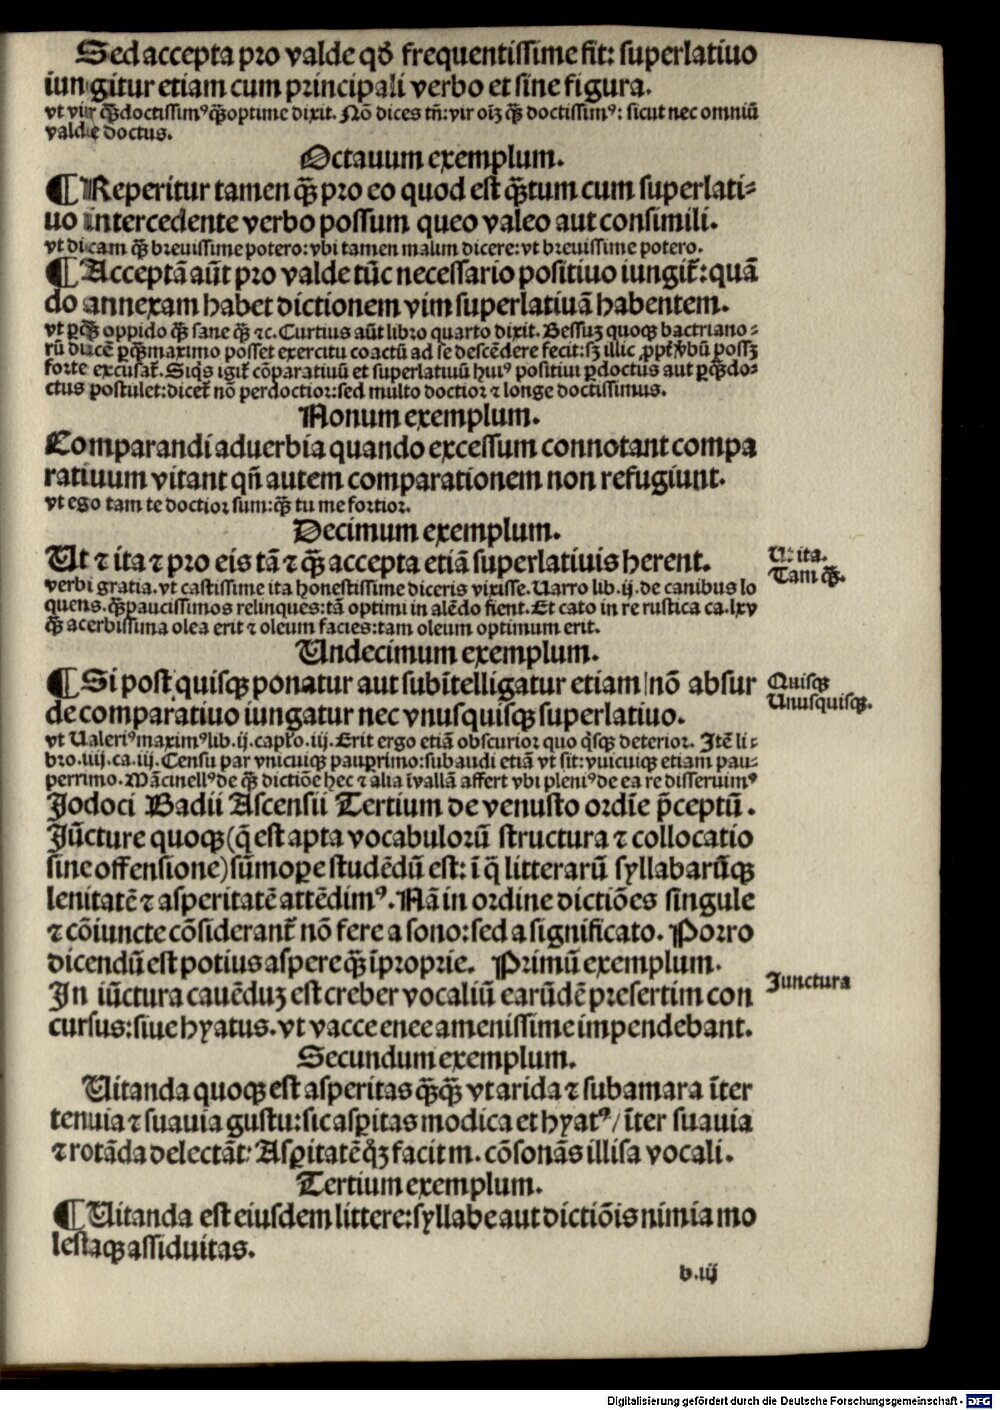 Sed accepta pro valde qđ frequentissime fit: superlatiuo
iungitur etiam cum principali verbo et sine figura.
vt vir q̃ʒdoctissimꝰ q̃ʒoptime dixit. Nõ dices tñ: vir oĩʒ q̃ʒ doctissimꝰ: sicut nec omniũ
valde doctus.
Octauum exemplum.
¶ Reperitur tamen q̃ʒ pro eo quod est q̃ʒtum cum superlati⸗
uo intercedente verbo possum queo valeo aut consimili.
vt dicam q̃ʒ breuissime potero: vbi tamen malun dicere: vt breuissime potero.
¶ Acceptã aũt pro valde tũc necessario positiuo iungit̃: quã
do annexam habet dictionem vim superlatiuã habentem.
vt ꝑq̃ʒ oppido q̃ʒ sane q̃ʒ ⁊c. Curtius aũt libro quarto dixit. Bessuʒ quoqʒ bactriano⸗
rũ ducẽ ꝑq̃ʒmaximo posset exercitu coactũ ad se descẽdere fecit: sʒ illic ꝓpt̃ v̉bũ possʒ
forte excusat̃. Siq̇s igit̃ cõparatiuũ et superlatiuũ huiꝰ positiui ꝑdoctus aut ꝑq̃ʒdo⸗
ctus postulet: dicet̃ nõ perdoctior: sed multo doctior ⁊ longe doctissimus.
Nonum exemplum.
Comparandi aduerbia quando excessum connotant compa
ratiuum vitant qñ autem comparationem non refugiunt.
vt ego tam te doctior sum: q̃ʒ tu me fortior.
Decimum exemplum.
Ut ⁊ ita ⁊ pro eis tã ⁊ q̃ʒ accepta etiã superlatiuis herent.
Ut ita.
Tam q̃ʒ.
verbi gratia. vt castissime ita honestissime diceris vixisse. Uarro lib. ij. de canibus lo
quens. q̃ʒpaucissimos relinques: tã optimi in alẽdo fient. Et cato in re rustica ca. lxv
q̃ʒ acerbissima olea erit ⁊ oleum facies: tam oleum optimum erit.
Undecimum exemplum.
¶ Si post quisqʒ ponatur aut subĩtelligatur etiam nõ absur
Quisqʒ
de comparatiuo iungatur nec vnusquisqʒ superlatiuo.
Unusquisqʒ.
vt Ualeriꝰ maximꝰ lib. ij. capĺo. iij. Erit ergo etiã obscurior quo q̇sqʒ deterior. Itẽ li⸗
bro. iiij. ca. iij. Censu par vnicuiqʒ pauꝑrimo: subaudi etiã vt sit: vuicuiqʒ etiam pau⸗
perrimo. Mãcinellꝰ de q̃ʒ dictiõe hec ⁊ alia ĩ vallã affert vbi pleniꝰ de ea re disseruimꝰ
Jodoci Badii Ascensii Tertium de venusto ordĩe p̃ceptũ.
Jũcture quoqʒ (q̃ est apta vocabulorũ structura ⁊ collocatio
sine offensione) sũmoꝑe studẽdũ est: ĩ q̃ litterarũ syllabarũqʒ
lenitatẽ ⁊ asperitatẽ attẽdimꝰ. Nã in ordine dictiões singule
⁊ cõiuncte cõsiderant̃ nõ fere a sono: sed a significato. Porro
dicendũ est potius aspere q̃ʒ ĩproprie. Primũ exemplum.
In iũctura cauẽduʒ est creber vocaliũ earũdẽ presertim con
Junctura
cursus: siue hyatus. vt vacce enee amenissime impendebant.
Secundum exemplum.
Uitanda quoqʒ est asperitas q̃ʒq̃ʒ vt arida ⁊ subamara ĩter
tenuia ⁊ suauia gustu: sic asꝑitas modica et hyatꝰ / ĩter suauia
⁊ rotãda delectãt: Asꝑitatẽ q̇ʒ facit m. cõsonãs illisa vocali.
Tertium exemplum.
¶ Uitanda est eiusdem littere: syllabe aut dictiõis nimia mo
lestaqʒ assiduitas.
b. iij
Digitalisierung gefördert durch die Deutsche Forschungsgemeinschaft - DFG